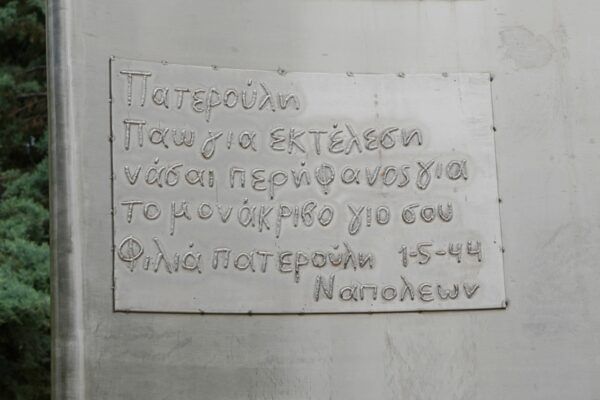 Πατερούλη
Πάω για εκτέλεση
νάσαι περήφανος για
το μονάκριβο γιο σου
Φιλιά πατερούλη 1-5-44
Ναπολεων